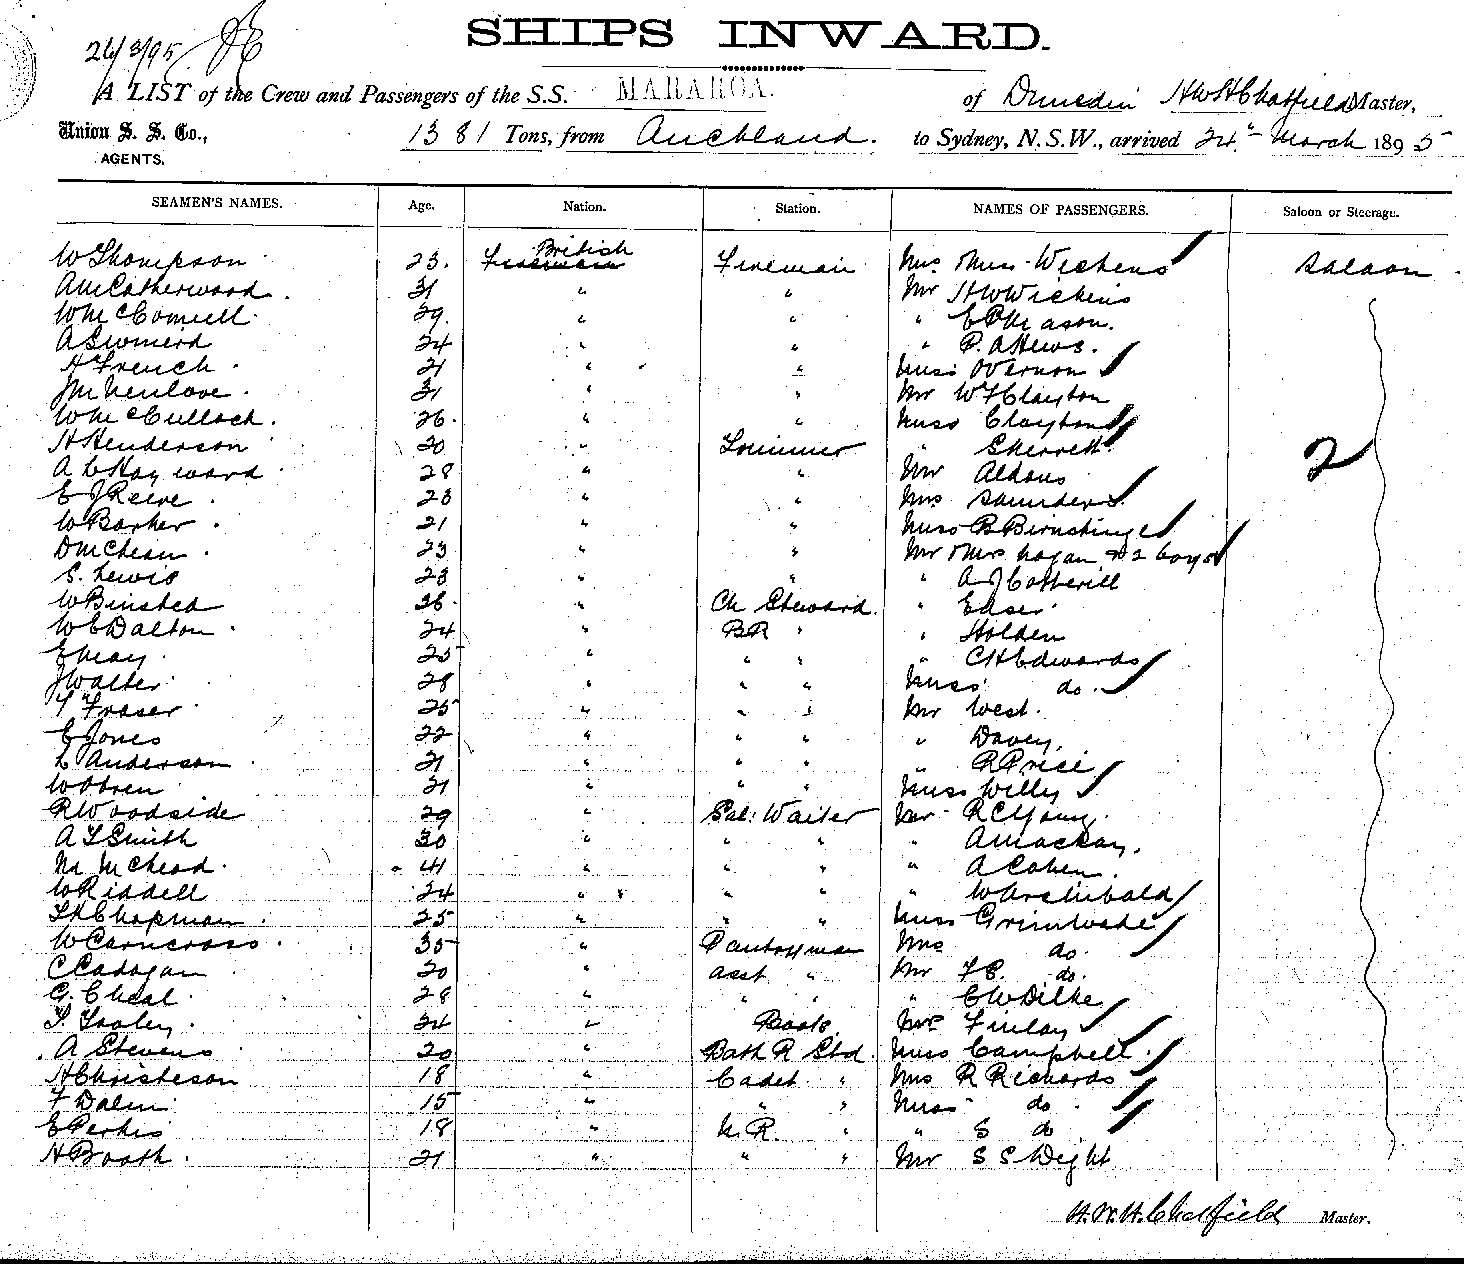 SHIPS INWARD.
26/3/95
A LIST of the Crew and Passengers of the S.S. MARAROA. of Dunedin H W H Chatfield Master,
Union S. S. Co., AGENTS.
1381 Tons, from Auckland. to Sydney, N.S.W., arrived 24th March 1895
SEAMEN'S NAMES. Age. Nation. Station. NAMES OF PASSENGERS. Saloon or Steerage.
W Thompson 23. British Fireman Mrs Miss Wickens Saloon
A McCatherwood. 31 " " Mr H W Wickins
W McConnell. 29. " " " E P Mason.
A 24 " " "
H French. 21 " " Miss Vernon
31 " " Mr W F Clayton
W McCulloch. 26. " " Miss Clayton
H Henderson 20 " Trimmer " Sherrett 2
A L Hayward 28 " " Mr Aldous
E J Reeve. 23 " " Mrs Saunders
W Barker. 21 " " Miss B
23 " " Mr & Mrs Hogan & 2 boys
S. Lewis 23 " " " A J Cotterill
W Binsted 36. " Ch Steward. "
W E Dalton. 24 " B R " " Holden
E May. 25 " " " " C H Edwards
J Walter. 28 " " " Miss do.
Fraser. 25 " " " Mr West.
E Jones 22 " " " " Davey.
L Anderson 21 " " " " R Price
W Obren 21 " " " Miss Willy
R Woodside 29 " Sal: Waiter Mr R C Young.
A L Smith 30 " " " " A Mackay.
41 " " " " A Cohen.
W Riddell 24 " " " " W Archibald
Chapman. 25 " " " Miss Grimwade
W Carncross. 35 " Pantryman Mrs do.
C Cadogan 20 " asst " Mr F S. do.
G. Cheal. 28 " " " " C W Dilke
T. Tooley. 24 " Mrs Finlay
A Stevens. 20 " Bath R Std. Miss Campbell.
H Christeson 18 " Cadet " Mrs R Richards
F 15 " " " Miss do.
E Perkis 18 " " " S do
H Booth. 21 " " " Mr S S Wight
H. W. H. Chatfield Master.